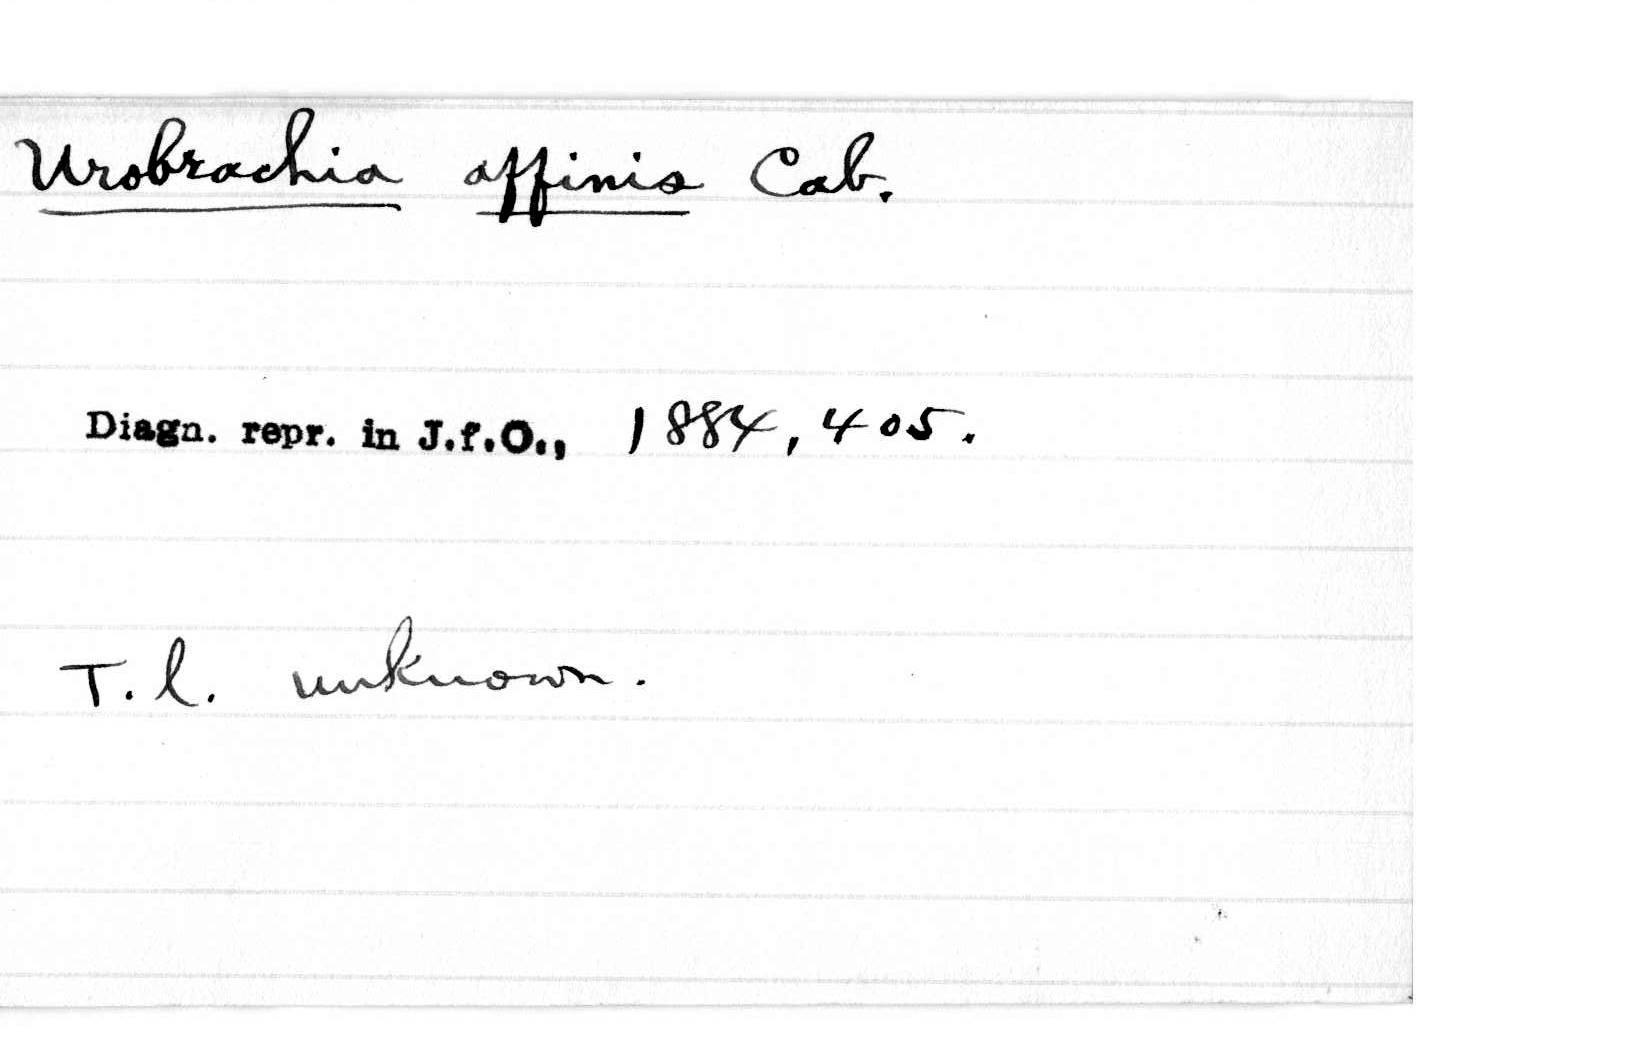 Urobrachia affinis Cab.
Diagn. repr. in J.f.O., 1884, 405.
T. l. unknown.